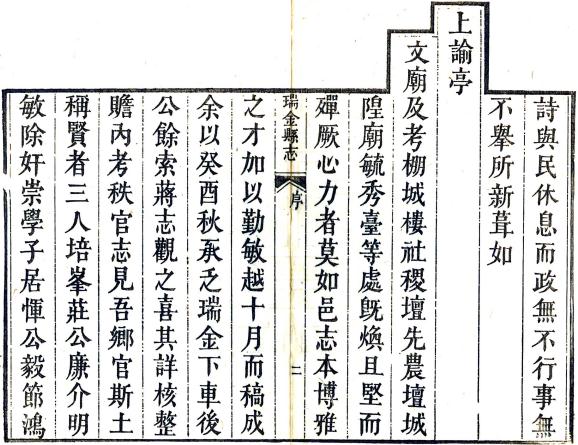 詩與民休息而政無不行事無
不舉所新葺如
上諭亭
文廟及考棚城樓社稷壇先農壇城
隍廟毓秀臺等處旣煥且堅而
殫厥心力者莫如邑志本博雅
瑞金縣志
序
二
之才加以勤敏越十月而稿成
余以癸酉秋承乏瑞金下車後
公餘索蔣志觀之喜其詳核整
贍內考秩官志見吾鄉官斯土
稱賢者三人培峯莊公廉介明
敏除奸崇學子居惲公毅節鴻